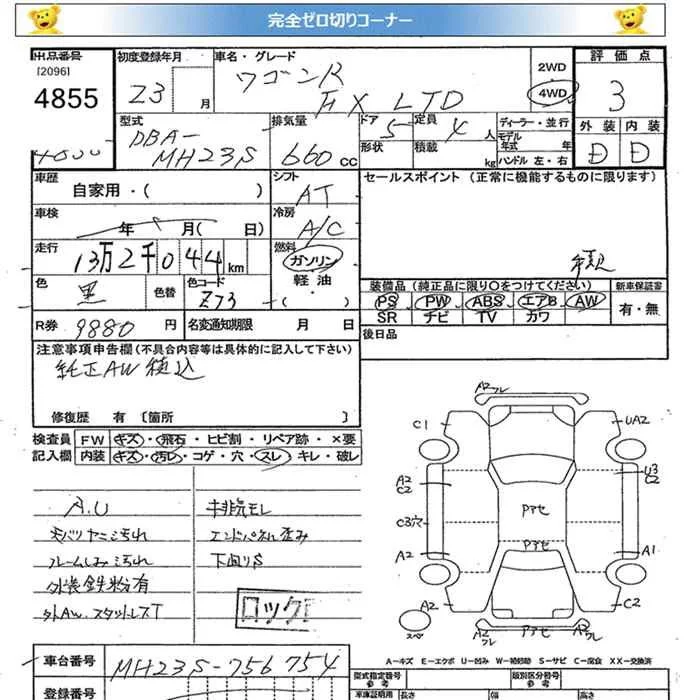 完全ゼロ切りコーナー
出品番号 初度登録年月 車名・グレード 評価点
[2096] ワゴンR 2WD
4855 23 月 FX LTD 4WD 3
型式 排気量 ドア 定員 ディーラー・並行 外装 内装
DBA- 5 4 人 モデル年式 年 D D
MH23S 660 cc 形状 積載 kg ハンドル 左・右
車歴 シフト セールスポイント (正常に機能するものに限ります)
自家用・( ) AT
車検 冷房
年 月( 日) A/C
走行 燃料
13万2千044 km ガソリン
色 色替 色コード 軽油 装備品 (純正品に限り○をつけてください) 新車保証書
黒 Z73 ・( ) PS PW ABS エアB AW 有・無
SR ナビ TV カワ
R券 9880 円 名変通知期限 月 日 後日品
注意事項申告欄(不具合内容等は具体的に記入して下さい)
純正AW積込
修復歴 有 〔箇所 〕
検査員 FW キズ・飛石・ヒビ割・リペア跡・×要
記入欄 内装 キズ・汚レ・コゲ・穴・スレ・キレ・破レ
A2フレ
C1 UA2
A2 U3
C2 C2
Pアセ
C3穴 Pアセ
A2 A1
A2 C2
スペ A2フレ Pアセ A2フレ
A.U 排気モレ
天バリヤニ汚れ エンドパネル歪み
フレームしみ汚れ 下回りS
外装鉄粉有
社外AW.スタットレスT ロック
A-キズ E-エクボ U-凹み W-補修跡 S-サビ C-腐食 XX-交換済
車台番号 MH23S-756754 型式指定番号 類別区分番号
参考 参考
登録番号 車庫証明用 長さ 幅 高さ